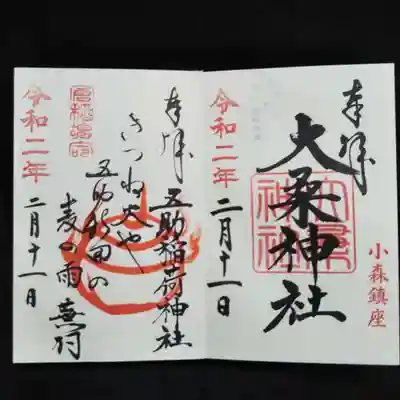 奉拝
大桑神社
小森鎮座
令和二年
二月十一日
奉拝
五助稲荷神社
きつね火や
五助新田の
麦の雨 蕪村
令和二年
二月十一日